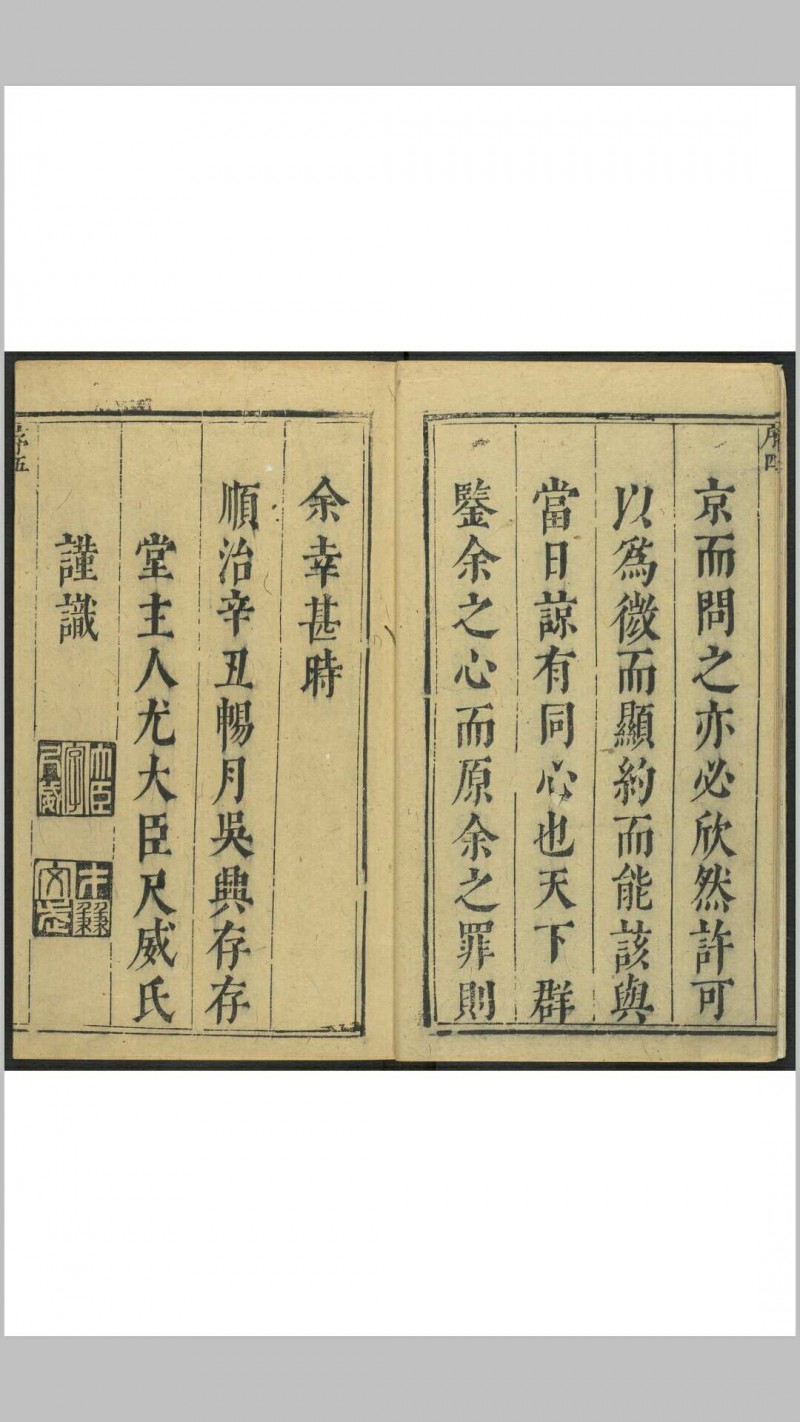 序四
京而問之亦必欣然許可
以爲微而顯約而能該與
當日諒有同心也天下群
鑒余之心而原余之罪則
序五
余幸甚時
順治辛丑暢月吳興存存
堂主人尤大臣尺威氏
謹識